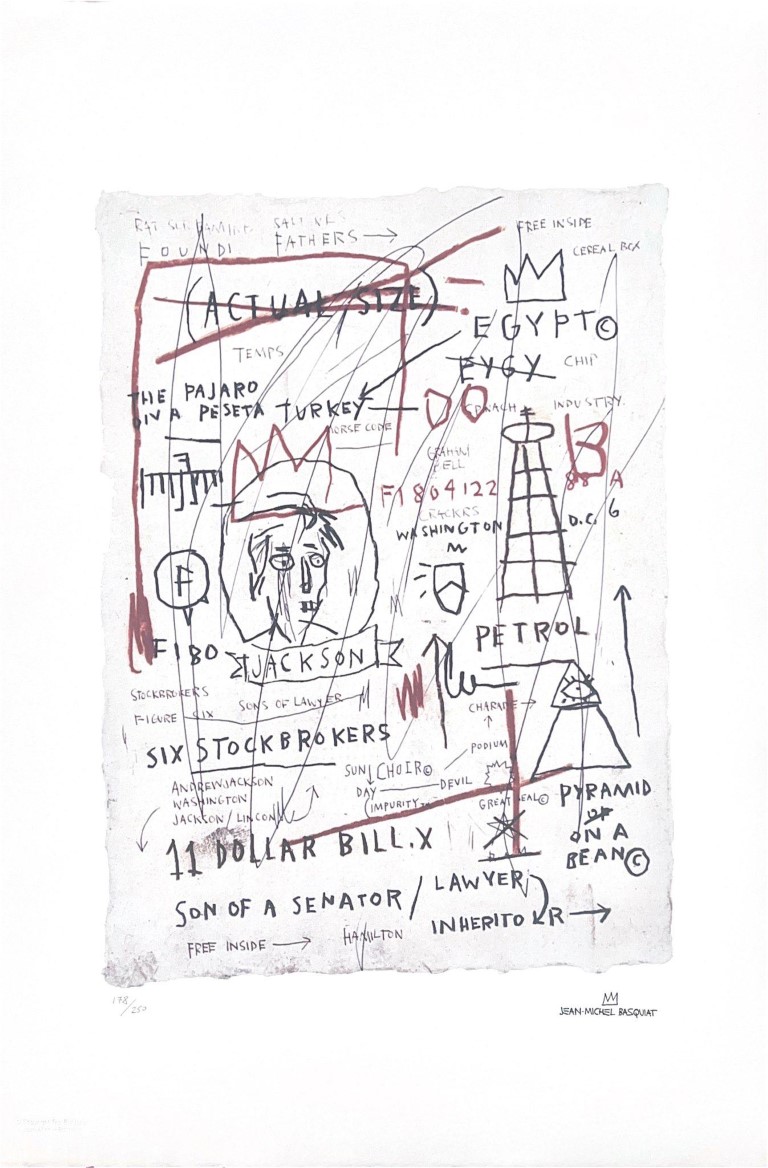 FOUNDI FATHERS
FREE INSIDE
CEREAL BOX
(ACTUAL SIZE)
EGYPT©
EYGY CHIP
TEMPS
THE PAJARO
ON A PESETA TURKEY
INDUSTRY
MORSE CODE
GRAHAM
BELL
B
88 A
F1804122
CRACKRS
WASHINGTON
D.C. 6
F
F180
JACKSON
PETROL
STOCKBROKERS
FIGURE SIX SONS OF LAWYER
CHARADE
SIX STOCKBROKERS
PODIUM
SUN CHOIR©
DAY DEVIL
(IMPURITY
GREAT SEAL©
ANDREWJACKSON
WASHINGTON
JACKSON/LINCON
PYRAMID
OF
ON A
BEAN©
11 DOLLAR BILL.X
SON OF A SENATOR / LAWYER
INHERITOR
FREE INSIDE HAMILTON
178/250
JEAN-MICHEL BASQUIAT